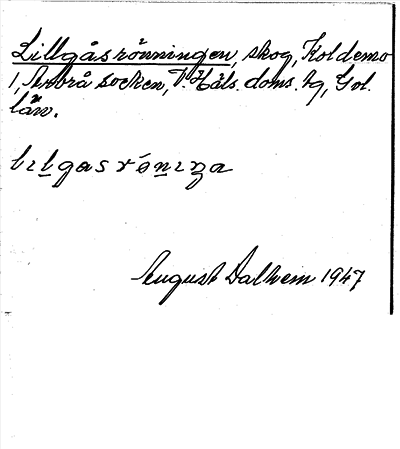 Lillgåsrönningen, skog, Koldemo
1, Arbrå socken, V. Häls. doms. tg, Gvl.
län.
August Dalhem 1947